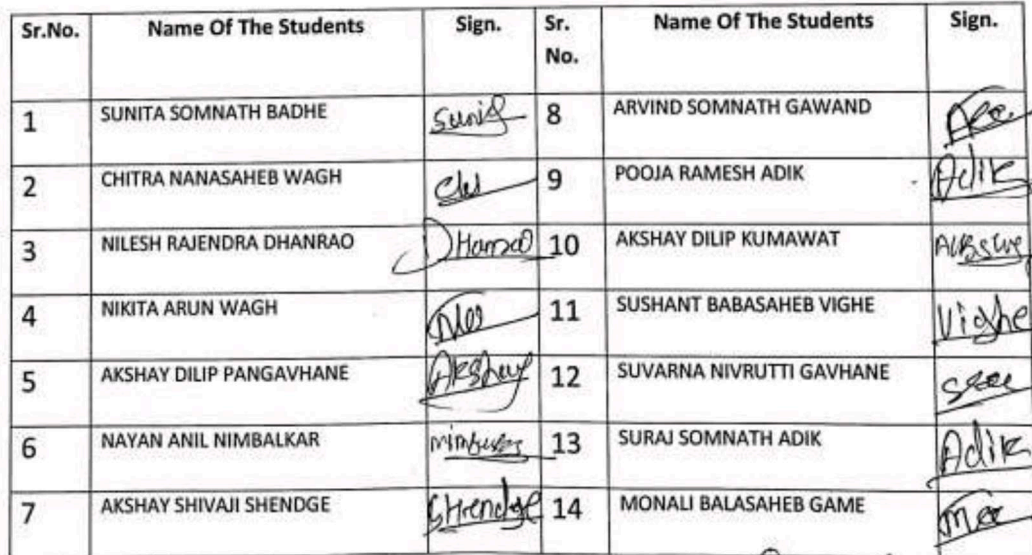 Sr.No. Name Of The Students Sign. Sr. No. Name Of The Students Sign.
1 SUNITA SOMNATH BADHE 8 ARVIND SOMNATH GAWAND
2 CHITRA NANASAHEB WAGH 9 POOJA RAMESH ADIK Adik
3 NILESH RAJENDRA DHANRAO 10 AKSHAY DILIP KUMAWAT
4 NIKITA ARUN WAGH 11 SUSHANT BABASAHEB VIGHE Vighe
5 AKSHAY DILIP PANGAVHANE Akshay 12 SUVARNA NIVRUTTI GAVHANE
6 NAYAN ANIL NIMBALKAR 13 SURAJ SOMNATH ADIK Adik
7 AKSHAY SHIVAJI SHENDGE SHendge 14 MONALI BALASAHEB GAME